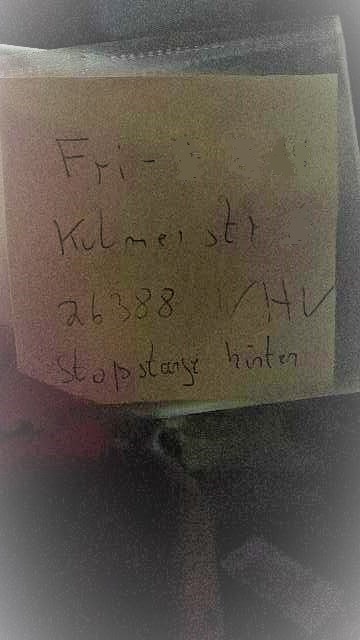 Fri-
Kulmer str
26388 WHV
Stopstange hinten